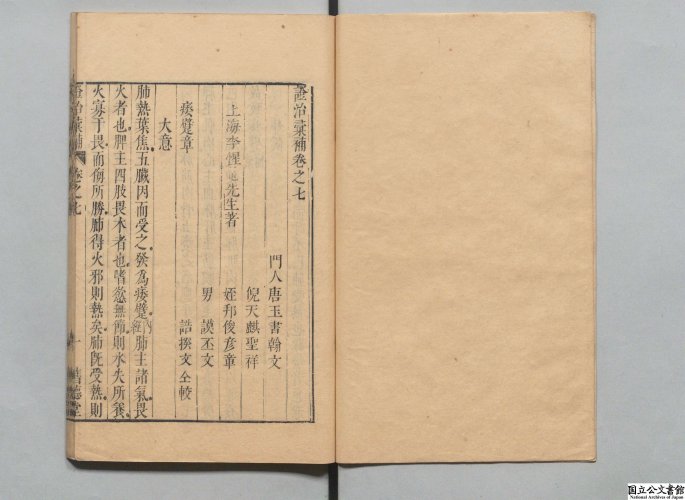 證治彙補卷之七
門人唐玉書翰文
倪天麒聖祥
上海李惺菴先生著
姪邦俊彥章
男 謨丕文
誥撰文仝較
痿躄章
大意
肺熱葉焦五臟因而受之發為痿躄內經肺主諸氣畏
火者也脾主四肢畏木者也嗜慾無節則水失所養
火寡于畏而侮所勝肺得火邪則熱矣肺旣受熱則
證治彙補 卷之七 一
國立公文書館
National Archives of Japan